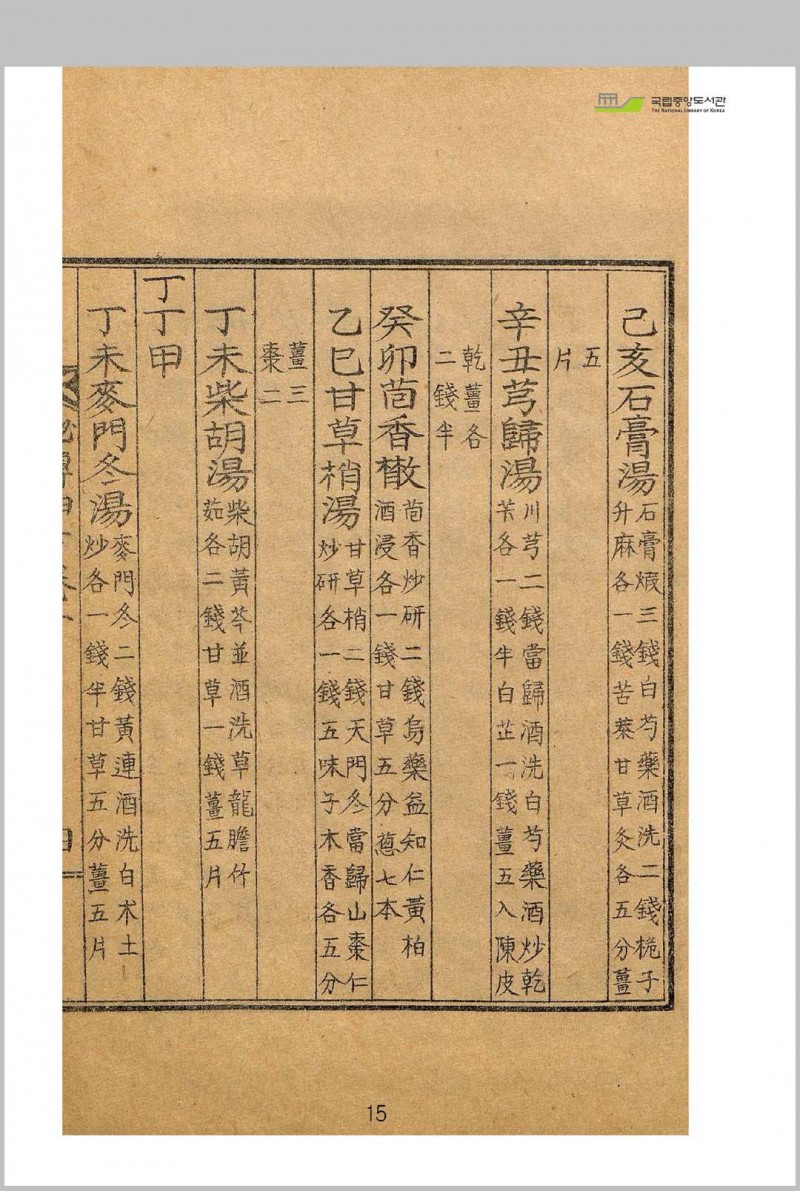 국립중앙도서관
THE NATIONAL LIBRARY OF KOREA
己亥石膏湯 石膏煆三錢白芍藥酒洗二錢梔子
升麻各一錢苦蔘甘草灸各五分薑
五
片
辛丑芎歸湯 川芎二錢當歸酒洗白芍藥酒炒乾
芐各一錢半白芷一錢薑五入陳皮
乾薑各
二錢半
癸卯茴香橵 茴香炒研二錢烏藥益知仁黃柏
酒浸各一錢甘草五分蔥七本
乙巳甘草梢湯 甘草梢二錢天門冬當歸山棗仁
炒研各一錢五味子木香各五分
薑三
棗二
丁未柴胡湯 柴胡黃芩並酒洗草龍膽竹
茹各二錢甘草一錢薑五片
丁丁甲
丁未麥門冬湯 麥門冬二錢黃連酒洗白朮土
炒各一錢半甘草五分薑五片
15